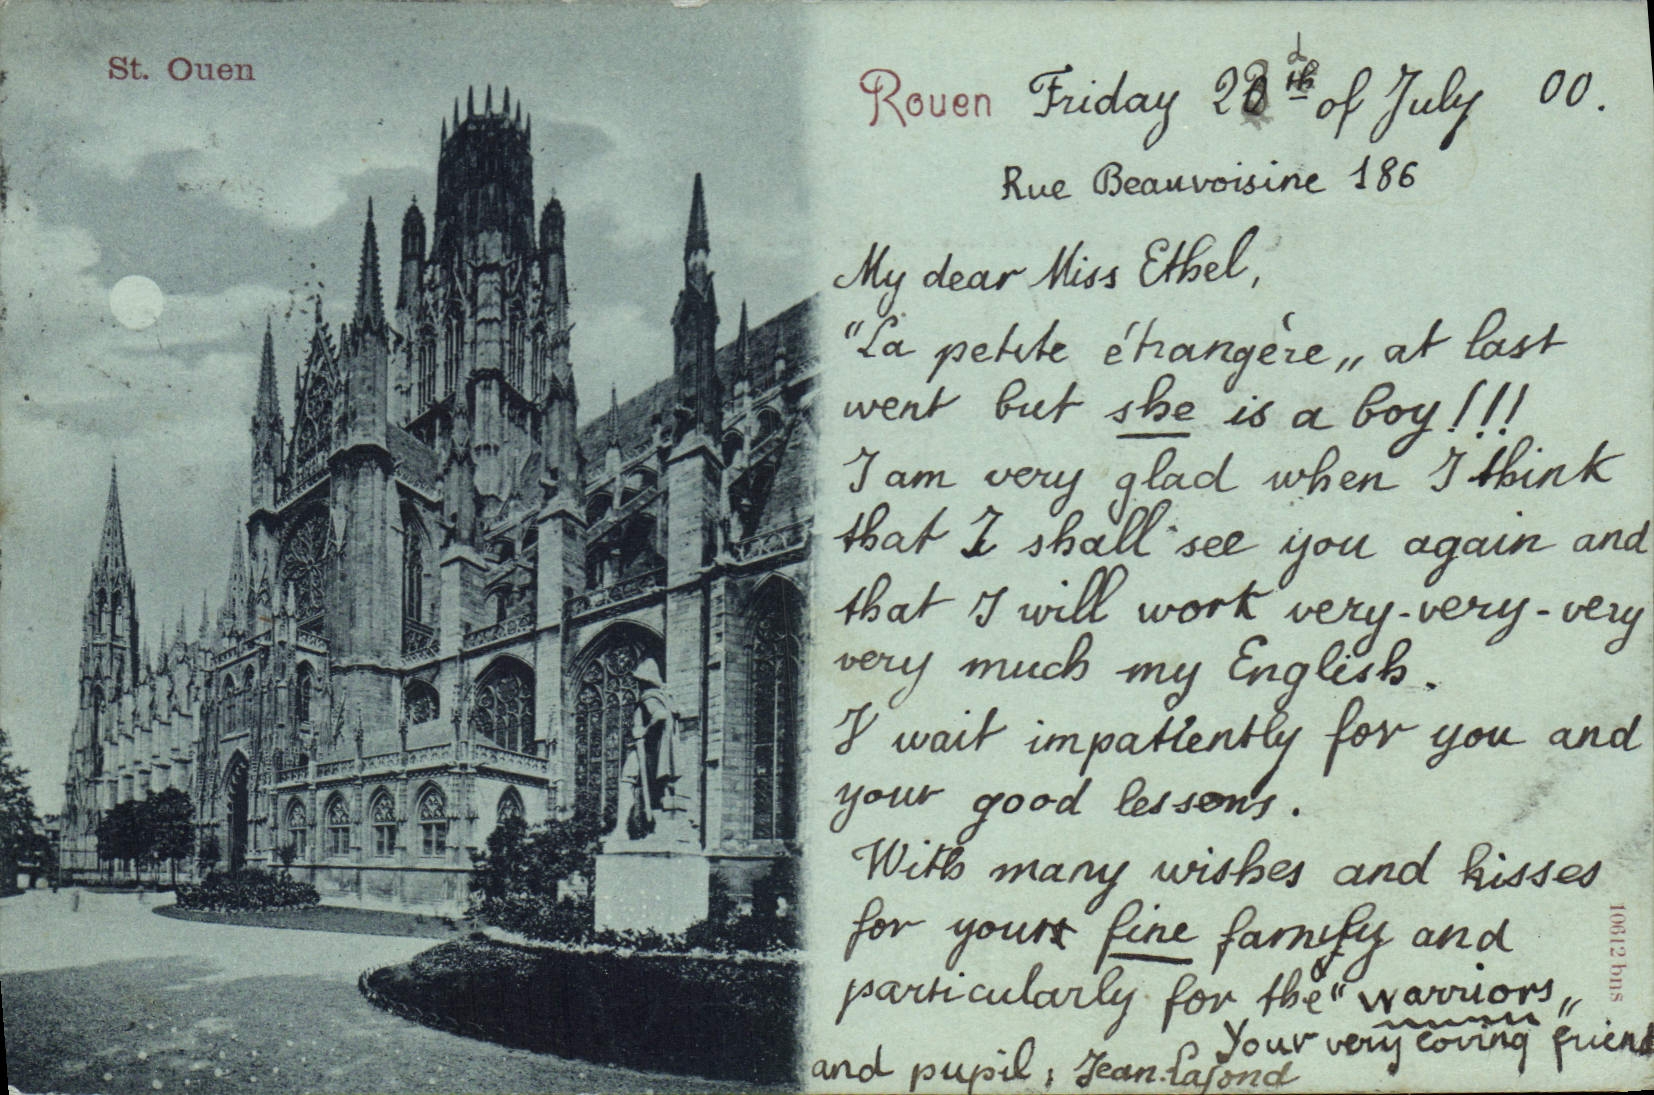 St. Ouen
Rouen Friday 20th of July 00.
Rue Beauvoisine 186
My dear Miss Ethel,
"La petite étrangère„ at last
went but she is a boy!!!
I am very glad when I think
that I shall see you again and
that I will work very-very-very
very much my English.
I wait impatiently for you and
your good lessons.
With many wishes and kisses
for your fine family and
particularly for the "warriors„
Your very loving friend
and pupil, Jean Lafond
10612 bns